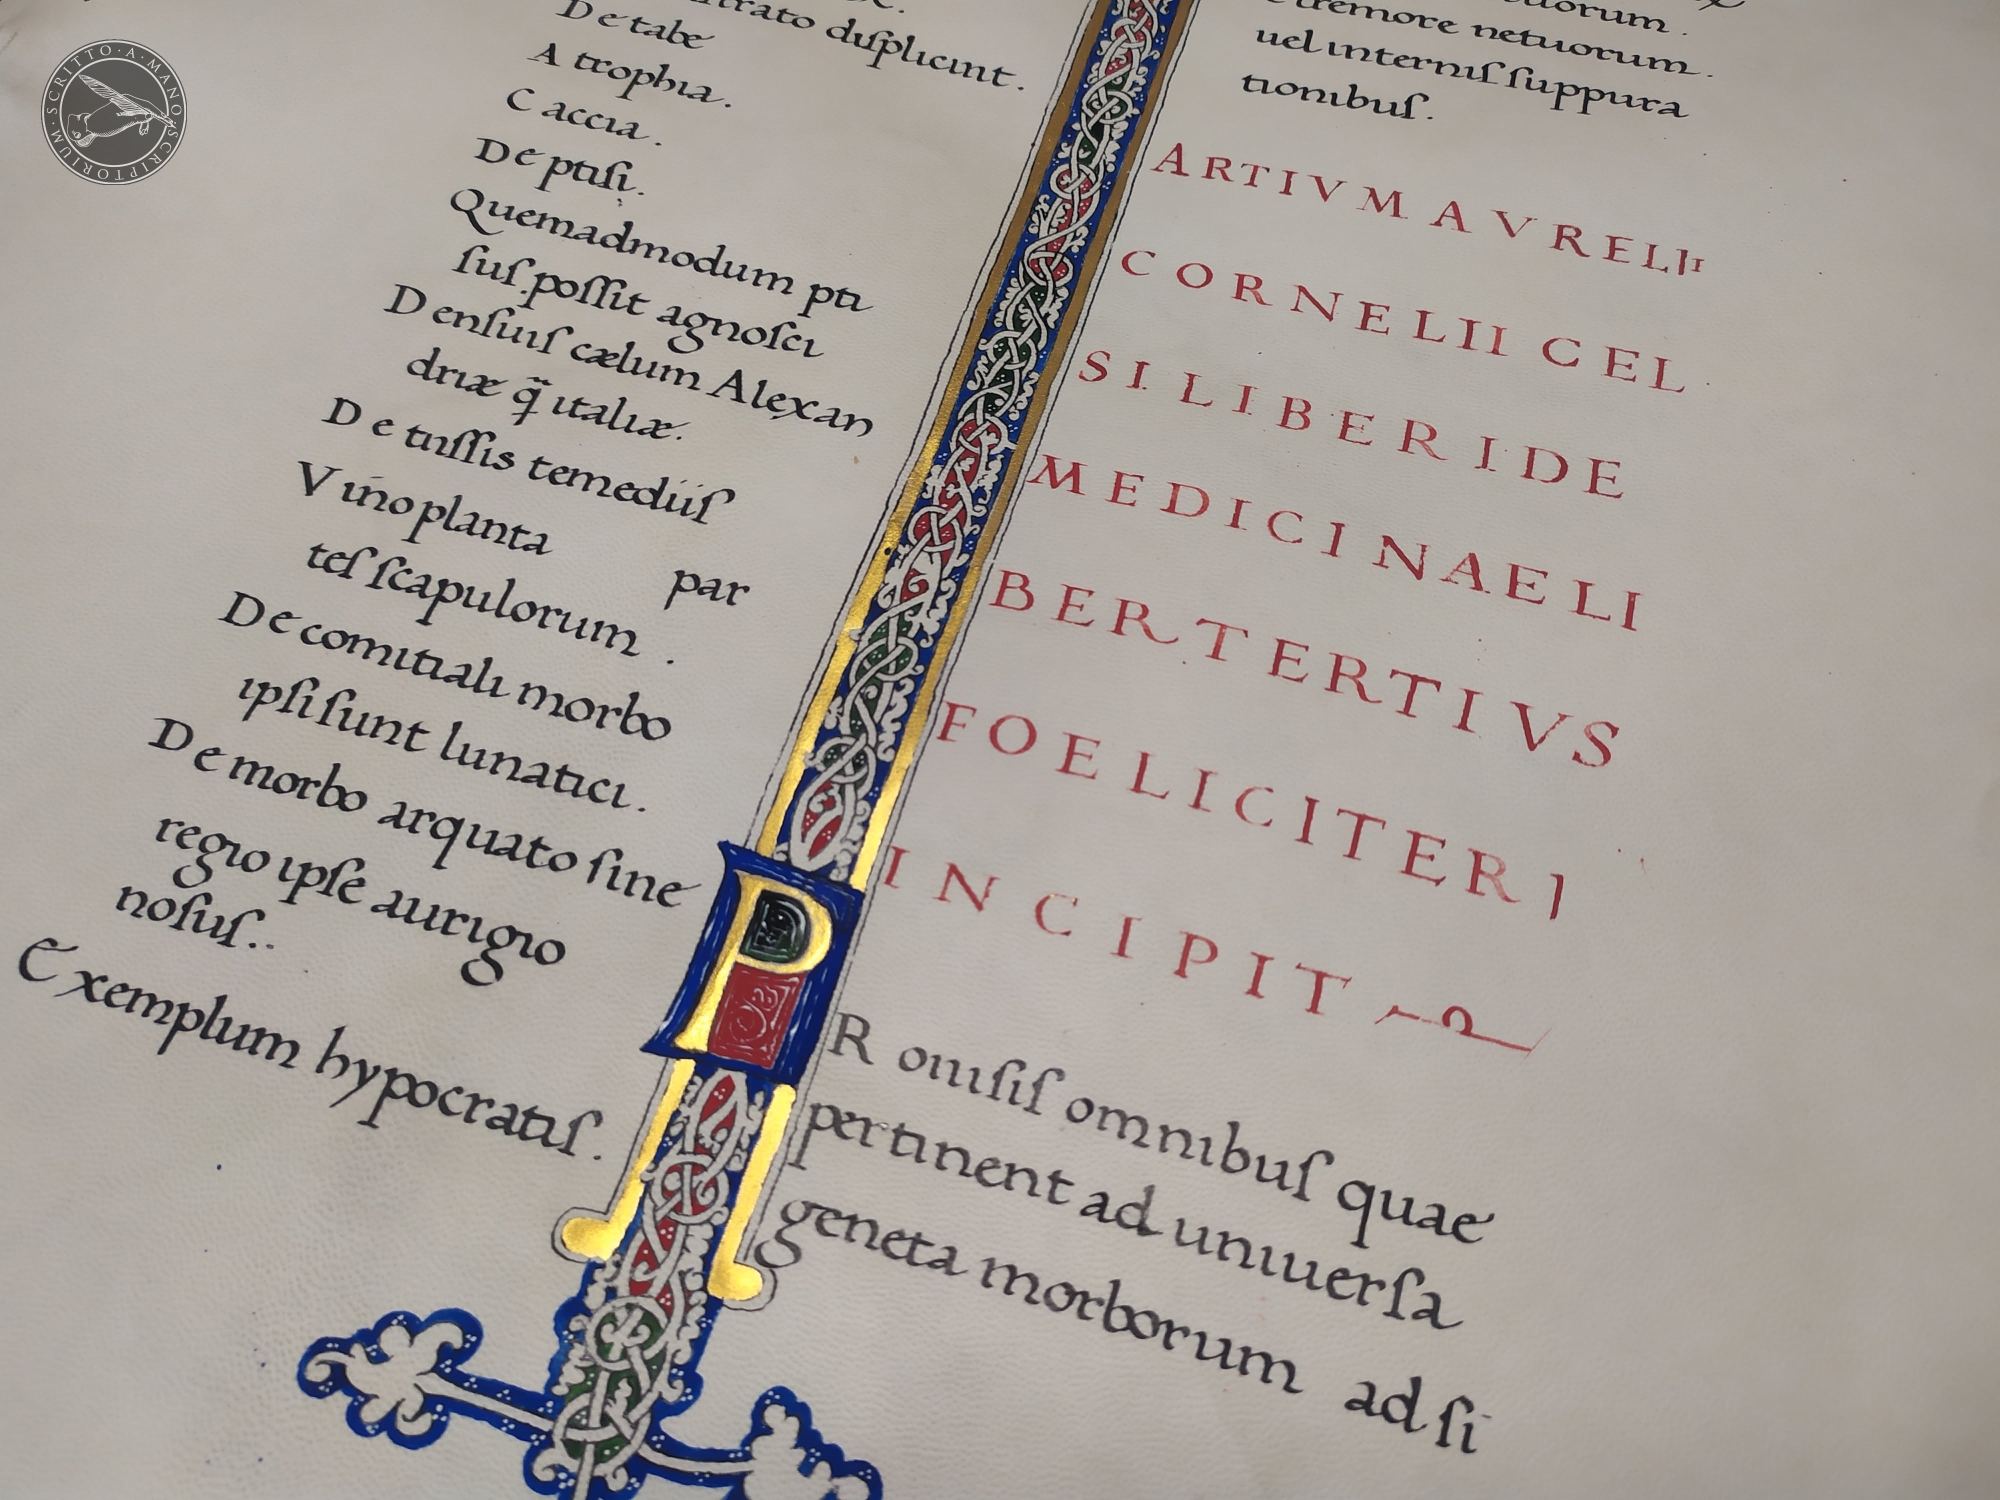 SCRITTO·A·MANO·SCRIPTORIUM·
duſplicint.
De tabe
A trophia.
C accia.
De ptiſi.
Quemadmodum pti
ſuſ poſſit agnoſci
D enſuiſ cælum Alexan
driæ q̃ italiæ.
D e tuſſis temediiſ
V ino planta
par
teſ ſcapulorum.
D e comitiali morbo
ipſi ſunt lunatici.
D e morbo arquato ſine
regio ipſe aurigio
noſuſ..
Exemplum hypocratiſ.
tremore netuorum.
uel interniſ ſuppura
tionibuſ.
ARTIVM AVRELII
CORNELII CEL
SI LIBER I DE
MEDICINAE LI
BER TERTIVS
FOELICITER I
INCIPIT
P R ouiſiſ omnibuſ quae
pertinent ad uniuerſa
geneta morborum ad ſi